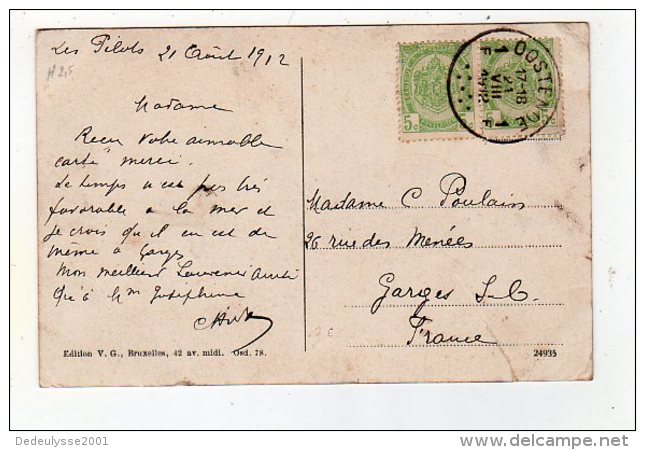 Les Pilots 21 Août 1912
Madame
Reçu votre aimable
carte merci.
Le temps n'est pas très
favorable à la mer et
je crois qu'il en est de
même à Garges
Mon meilleur Souvenir ainsi
qu'à Mm Joséphine
5c
5c
OOSTENDE
1F 1F
17-18
21
VIII
1912
Madame C Poulain
26 rue des Menées
Garges S.-G.
France
Edition V. G., Bruxelles, 42 av. midi. Ost. 78.
24935
Dedeulysse2001
delcampe.net